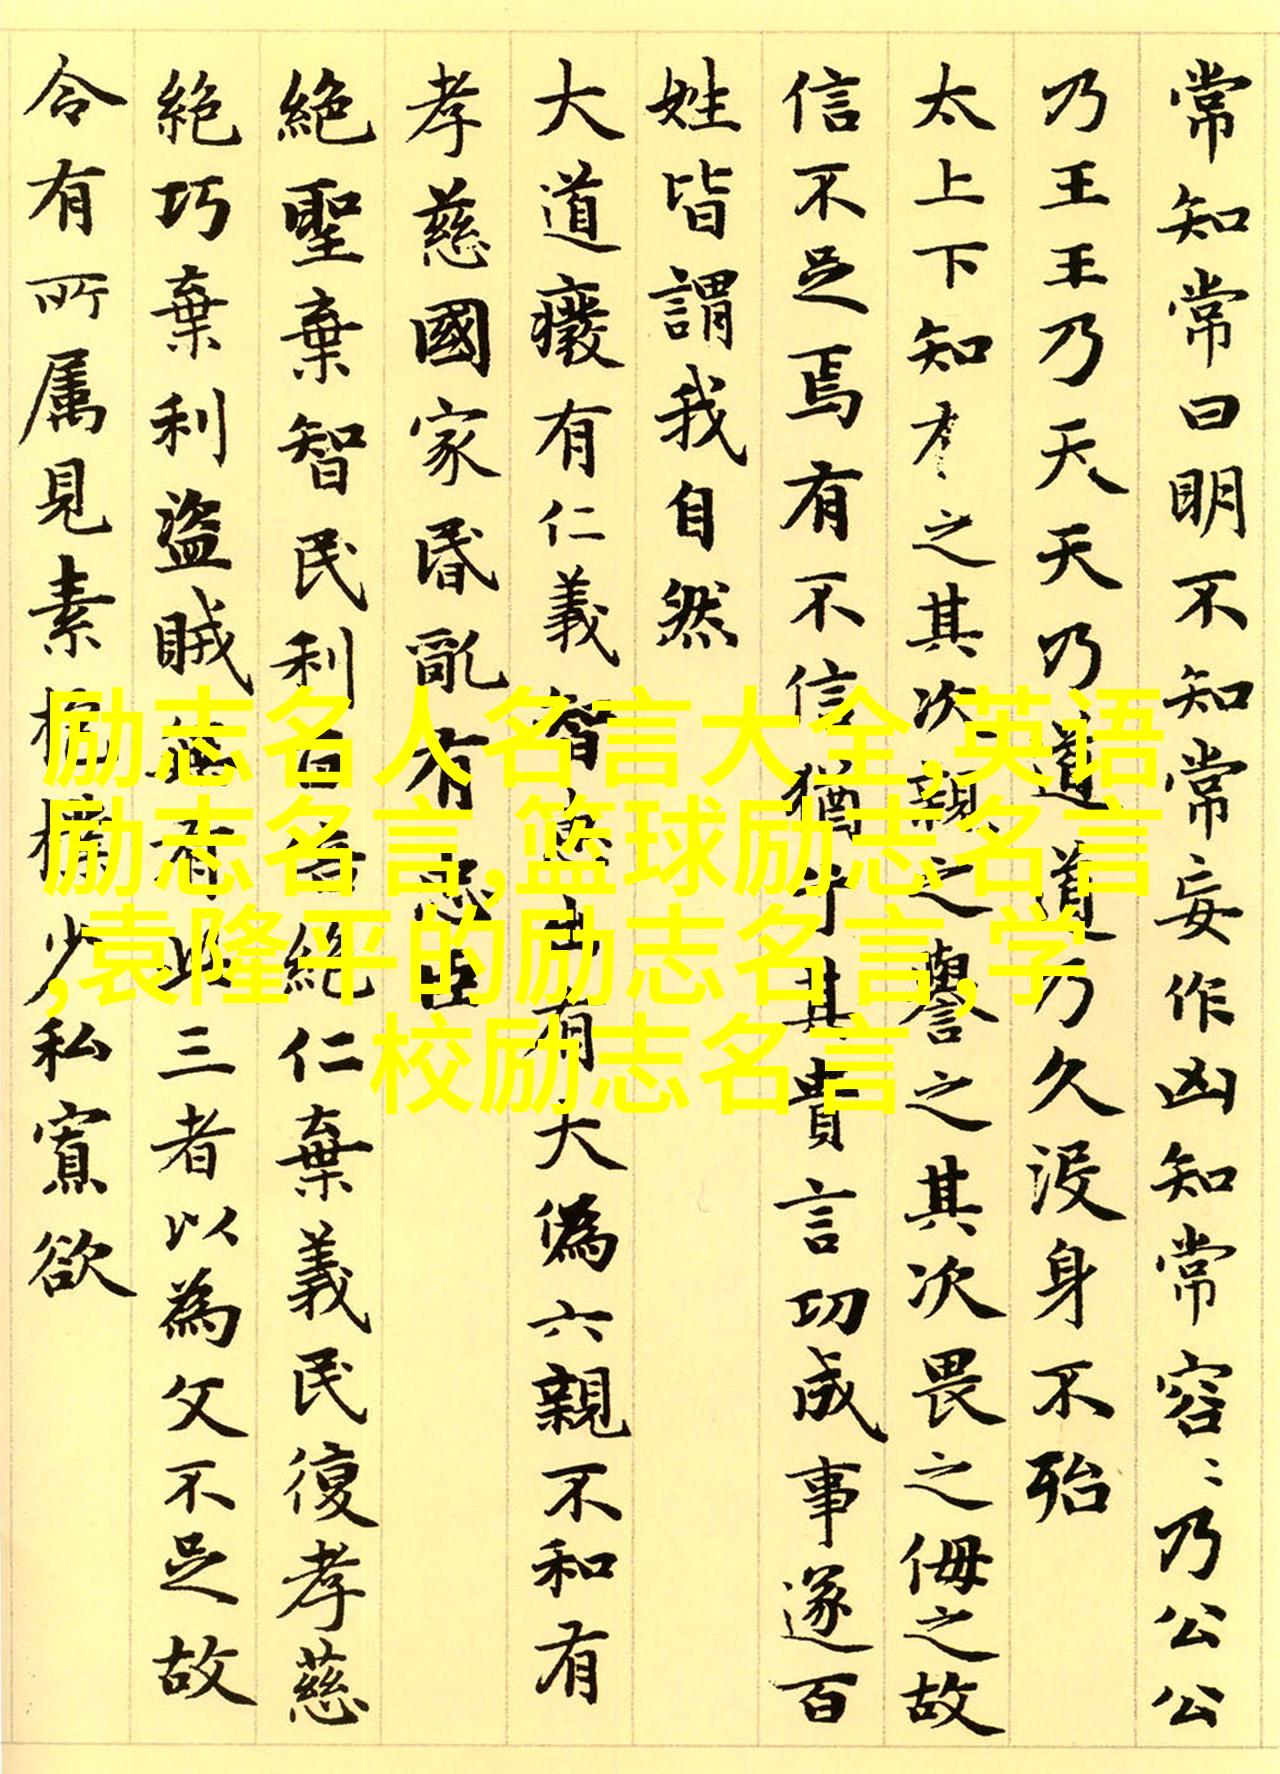 常知常曰明不知常妄作凶知常容〻乃公公
乃王王乃天天乃道道乃久沒身不殆
太上下知有之其次親之譽之其次畏之侮之故
信不足焉有不信猶乎其貴言功成事遂百
姓皆謂我自然
大道癈有仁義智惠出有大偽六親不和有
孝慈國家昬亂有忠臣
絶聖棄智民利百倍絶仁棄義民復孝慈
絶巧棄利盜賊無有此三者以為文不足故
令有所属見素抱樸少私寡欲
励志名人名言大全,英语
励志名言,篮球励志名言
,袁隆平的励志名言,学
校励志名言